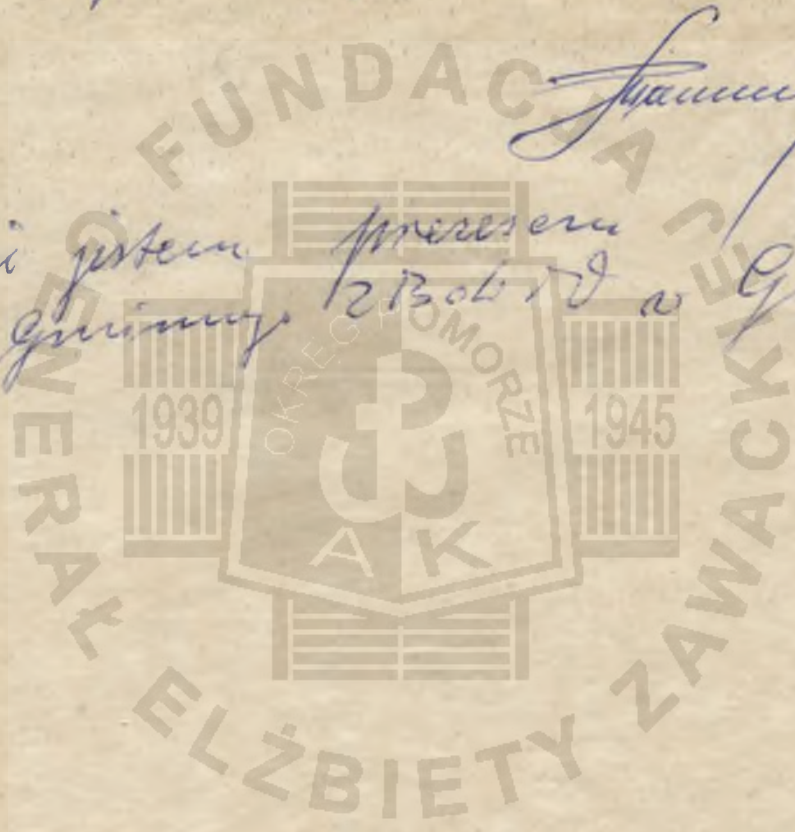 i jestem prezesem
gminnego ZBoWiD w G
FUNDACJA GENERAŁ ELŻBIETY ZAWACKIEJ
OKRĘG POMORZE
1939
1945
AK